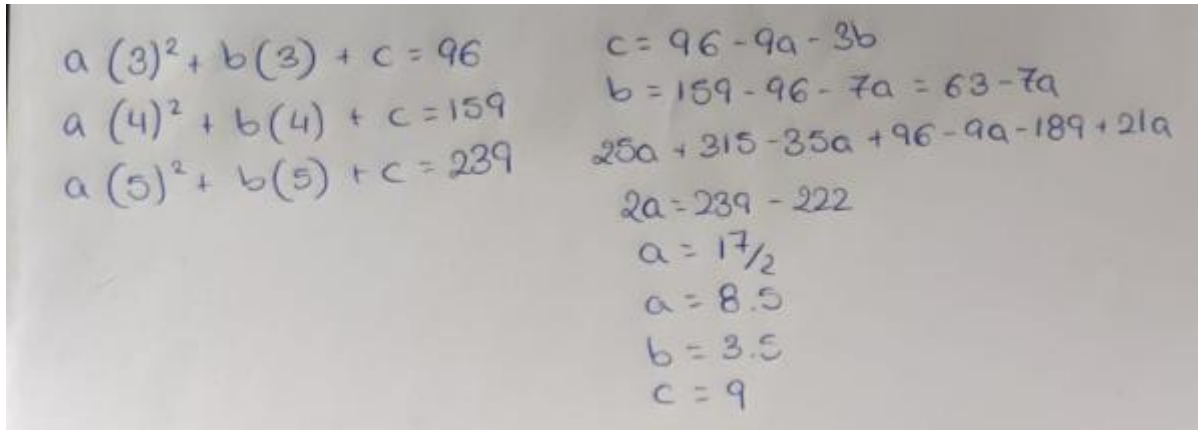 a (3)² + b(3) + c = 96
a (4)² + b(4) + c = 159
a (5)² + b(5) + c = 239
c = 96 - 9a - 3b
b = 159 - 96 - 7a = 63 - 7a
25a + 315 - 35a + 96 - 9a - 189 + 21a
2a = 239 - 222
a = 17/2
a = 8.5
b = 3.5
c = 9